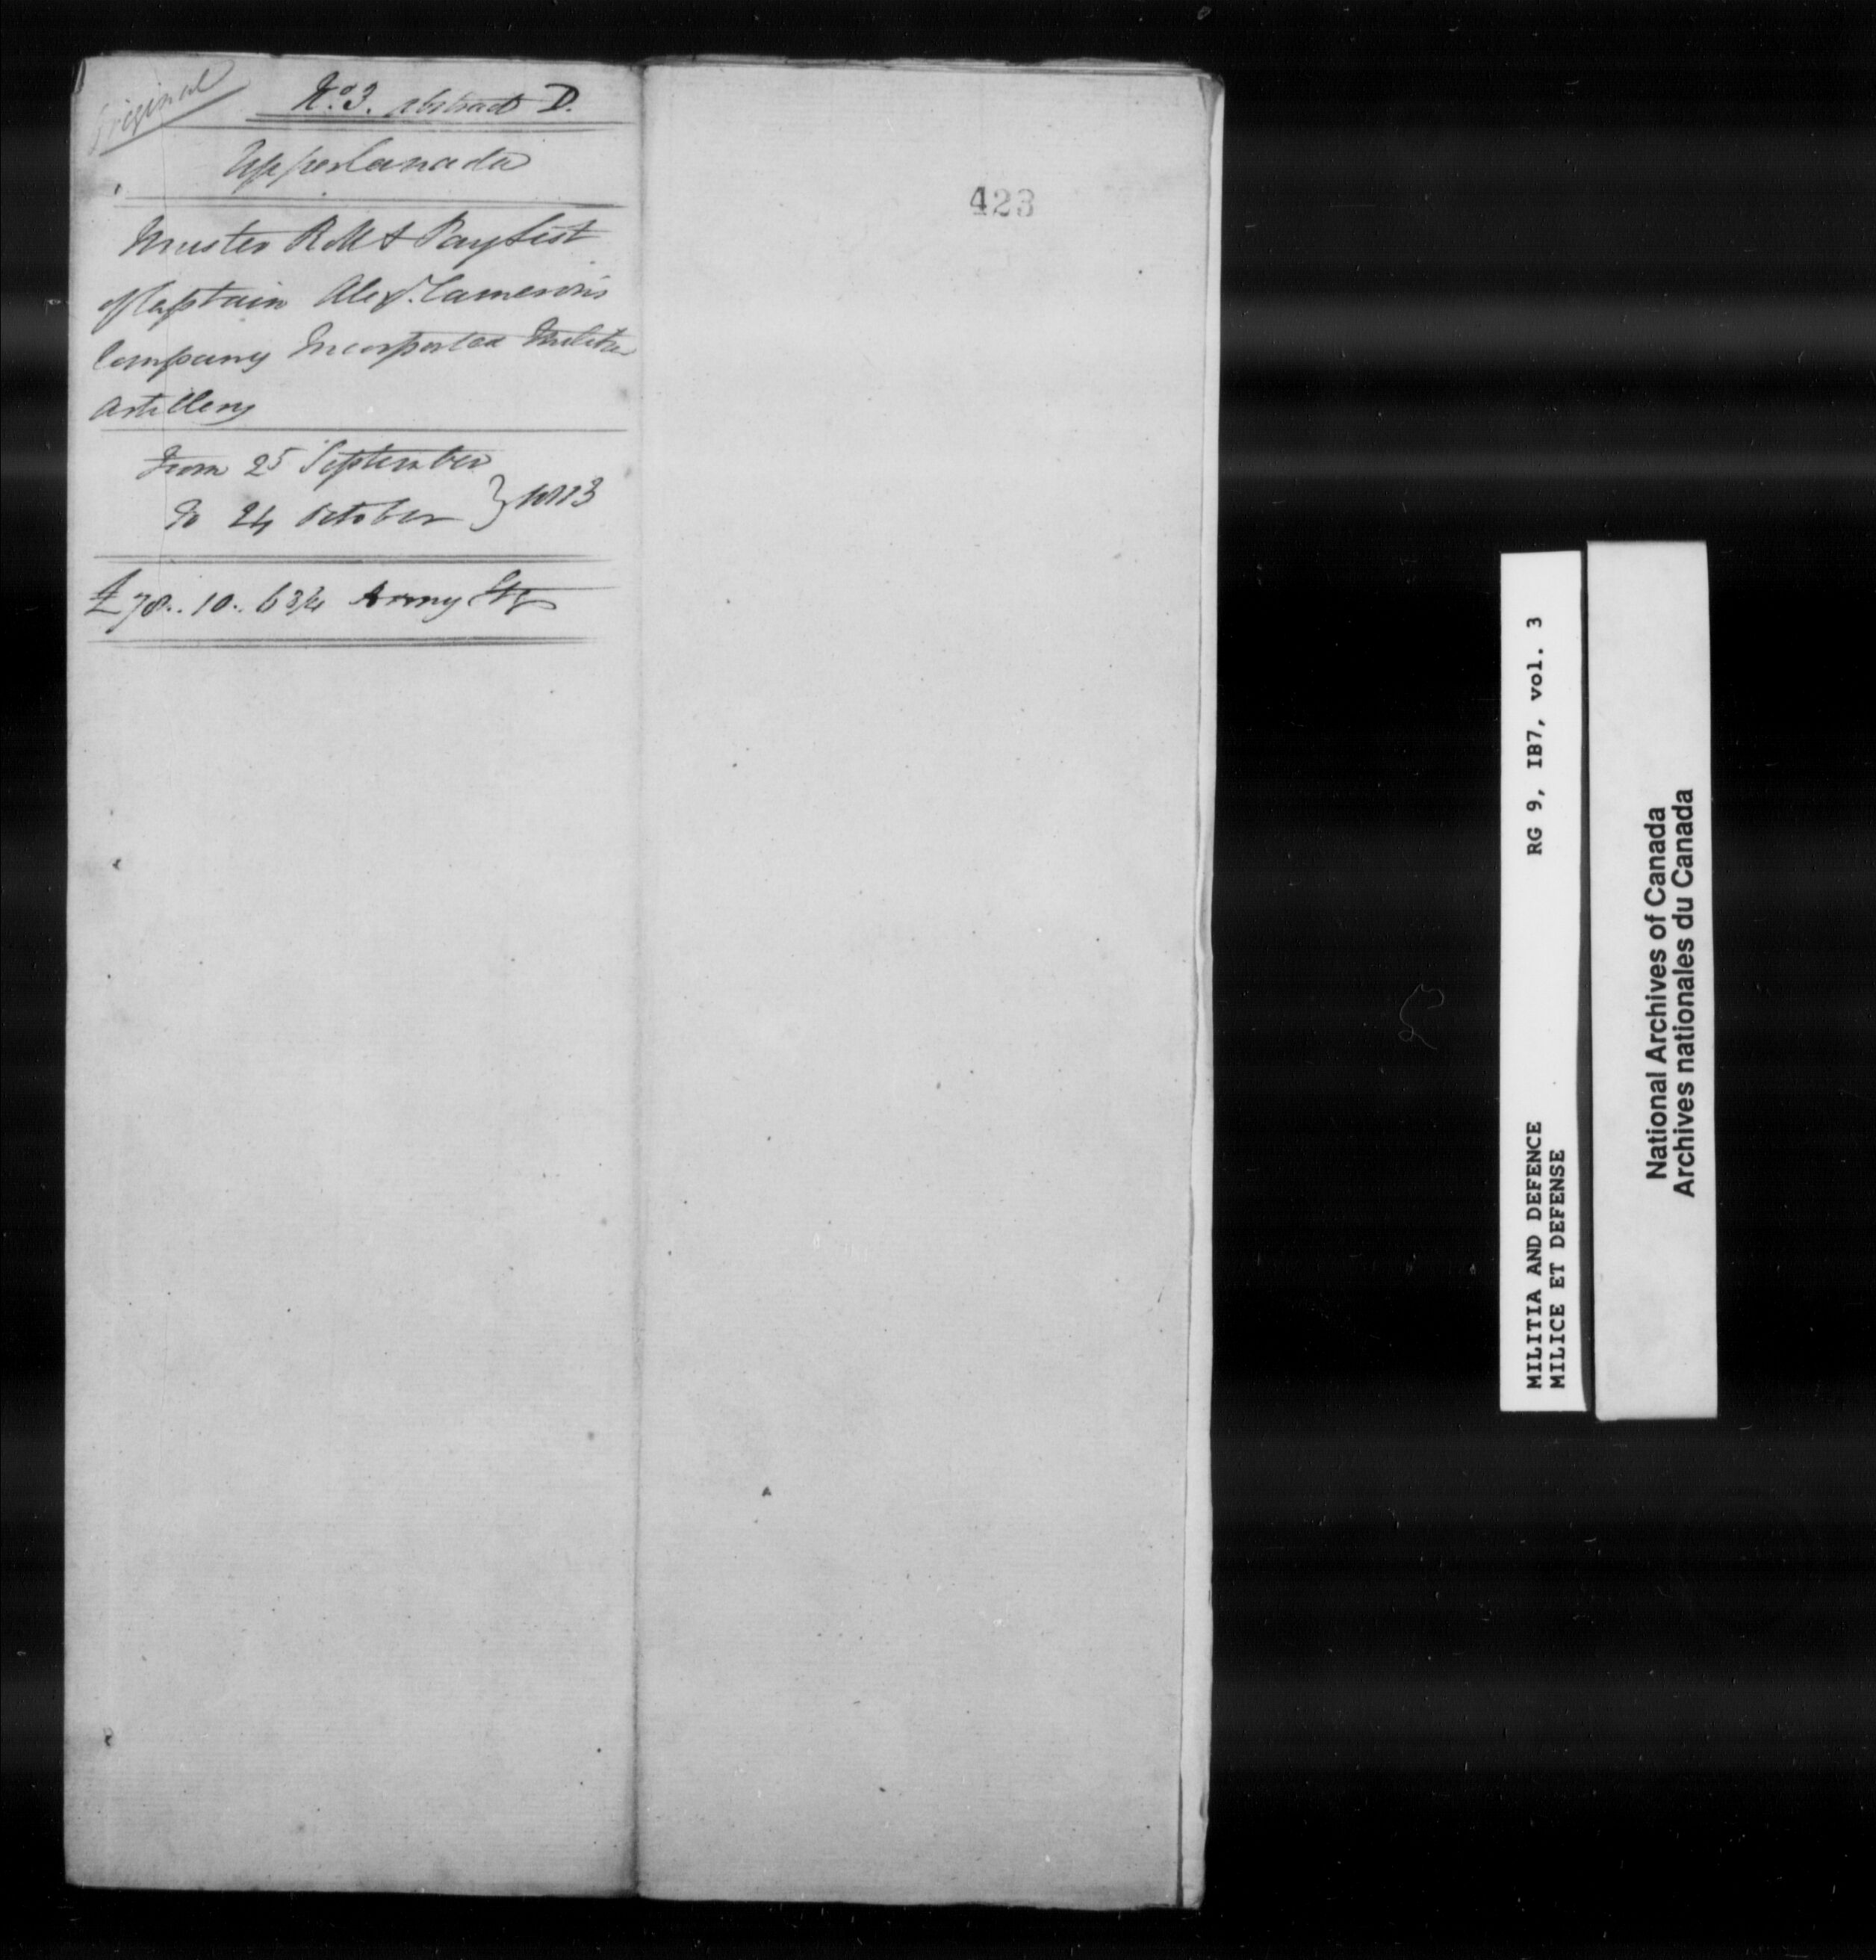 Original
No. 3. Abstract D.
Upper Canada
Muster Roll & Pay List
of Captain Alexr. Cameron's
Company Incorporated Militia
Artillery
From 25 September
to 24 October } 1813
£78..10..6 3/4 Army Stg
423
MILITIA AND DEFENCE RG 9, IB7, vol. 3
MILICE ET DEFENSE
National Archives of Canada
Archives nationales du Canada